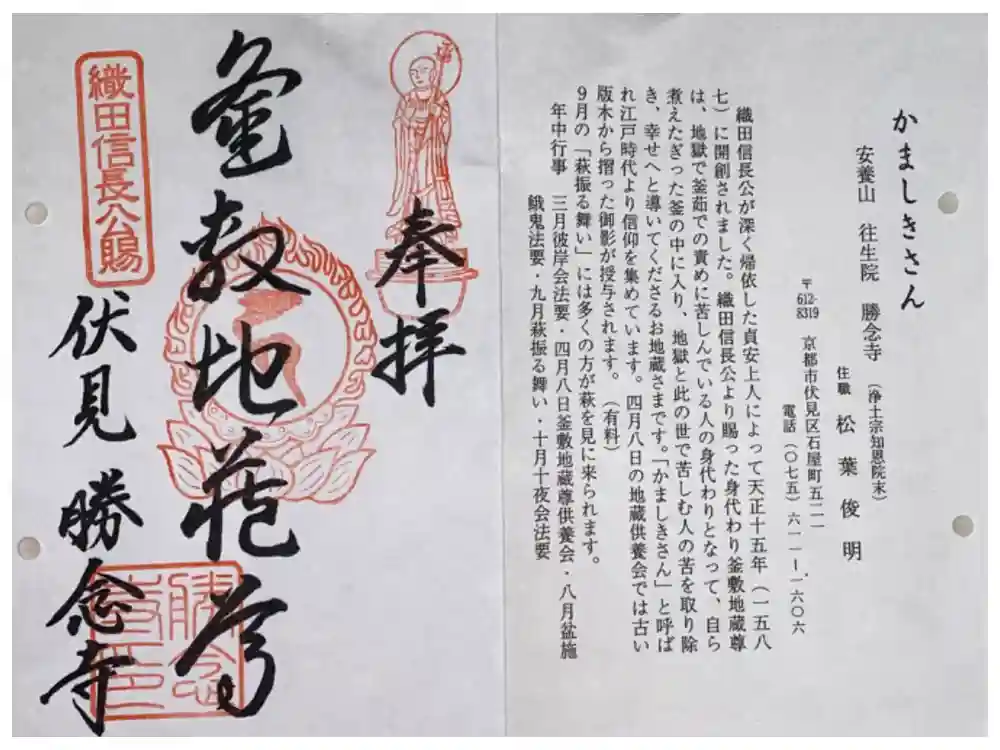 かましきさん
安養山　往生院　勝念寺　（浄土宗知恩院末）
住職　松葉俊明
〒612-8319　京都市伏見区石屋町五二一
電話（〇七五）六一一ー一六〇六
織田信長公が深く帰依した貞安上人によって天正十五年（一五八
七）に開創されました。織田信長公より賜った身代わり釜敷地蔵尊
は、地獄で釜茹での責めに苦しんでいる人の身代わりとなって、自ら
煮えたぎった釜の中に入り、地獄と此の世で苦しむ人の苦を取り除
き、幸せへと導いてくださるお地蔵さまです。「かましきさん」と呼ば
れ江戸時代より信仰を集めています。四月八日の地蔵供養会では古い
版木から摺った御影が授与されます。（有料）
９月の「萩振る舞い」には多くの方が萩を見に来られます。
年中行事　三月彼岸会法要・四月八日釜敷地蔵尊供養会・八月盆施
餓鬼法要・九月萩振る舞い・十月十夜会法要
奉拝
釜敷地蔵尊
織田信長公賜
伏見　勝念寺
勝念寺印